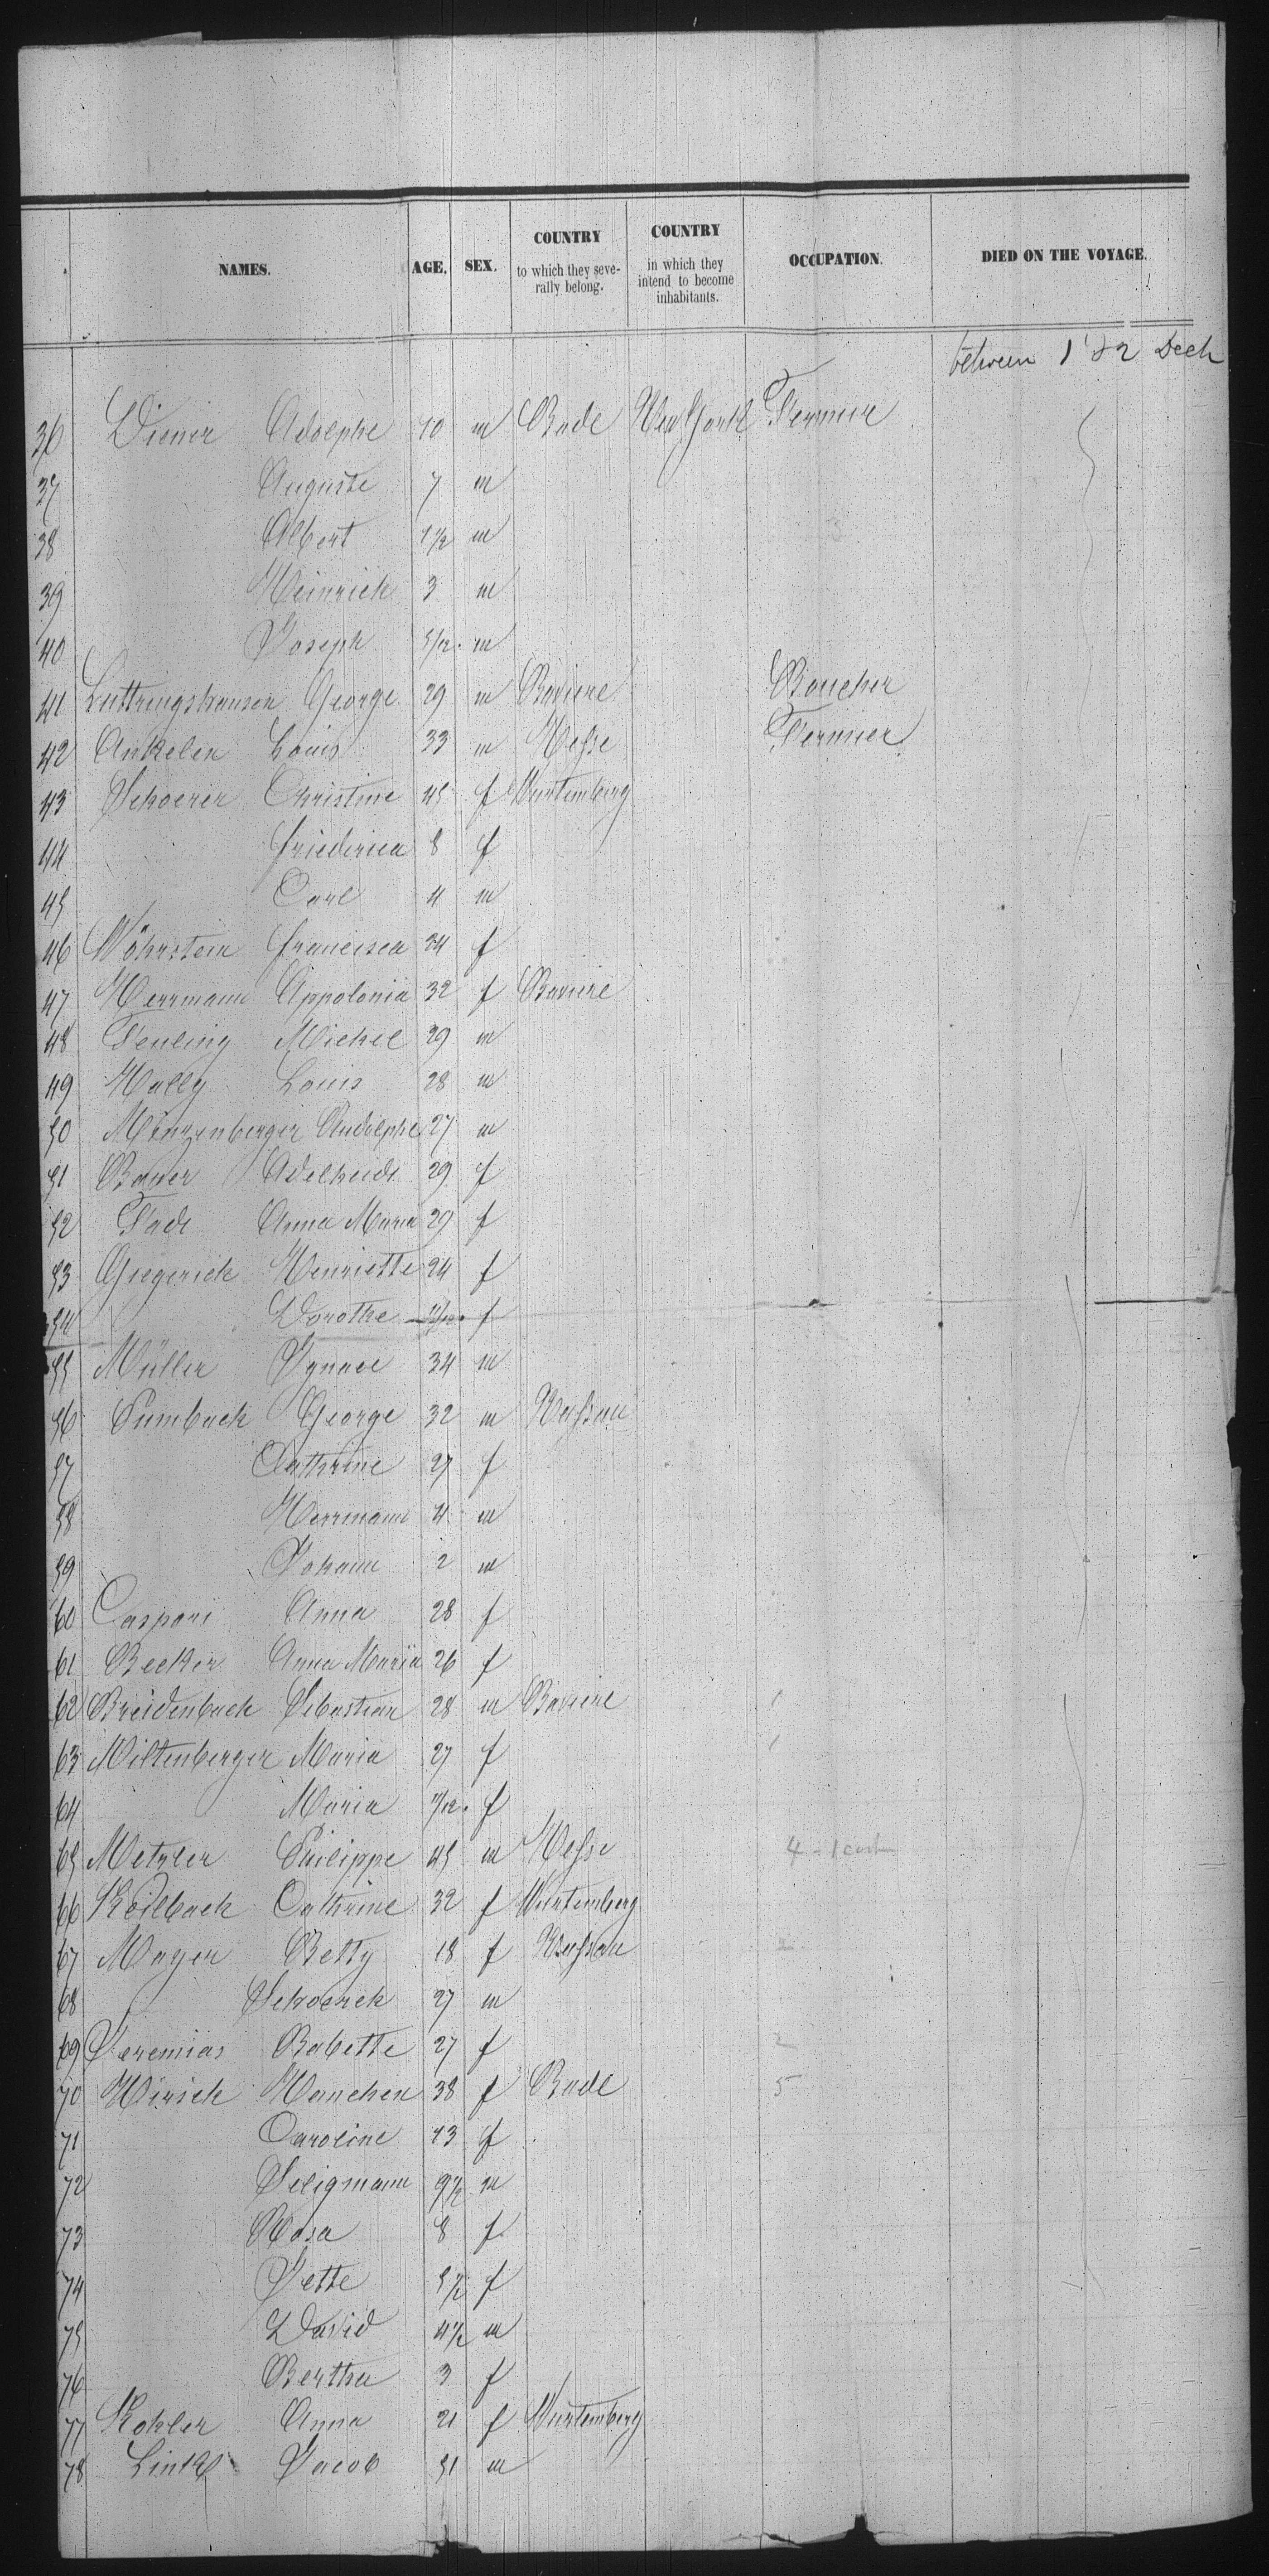 NAMES. AGE. SEX. COUNTRY to which they severally belong. COUNTRY in which they intend to become inhabitants. OCCUPATION. DIED ON THE VOYAGE.
between 1 & 2 Deck
36 Diener Adolphe 10 m Bade New York Fermier
37 Auguste 7 m
38 Albert 1 1/2 m
39 Heinrich 3 m
40 Joseph 5/12 m
41 Luttringshausen George 29 m Baviere Boucher
42 Ankelen Louis 33 m Hesse Fermier
43 Schoerer Christine 45 f Wurtemberg
44 Friederica 8 f
45 Carl 4 m
46 Wöhrstein Francisca 24 f
47 Herrmann Appolonia 32 f Baviere
48 Feuling Michel 29 m
49 Hally Louis 28 m
50 27 m
51 Bauer Adelheid 29 f
52 Anna Maria 29 f
53 Henriette 24 f
54 Dorothe 11/12 f
55 Müller Ignace 34 m
56 George 32 m Nassau
57 Cathrine 27 f
58 Herrmann 4 m
59 Johann 2 m
60 Caspari Anna 28 f
61 Becker Anna Maria 26 f
62 Breidenbach Sebastian 28 m Baviere
63 Miltenberger Maria 27 f
64 Maria 11/12 f
65 Metzler Philippe 45 m Hesse 4 - 1
66 Cathrine 32 f Wurtemberg
67 Mayer Betty 18 f Nassau 2
68 27 m
69 Jeremias Babette 27 f 2
70 Hirsch Hanchen 38 f Bade 5
71 Caroline 13 f
72 Seligmann 9 1/2 m
73 Rosa 8 f
74 Jette 5 1/2 f
75 David 4 1/2 m
76 Bertha 3 f
77 Kohler Anna 21 f Wurtemberg
78 Link Jacob 51 m